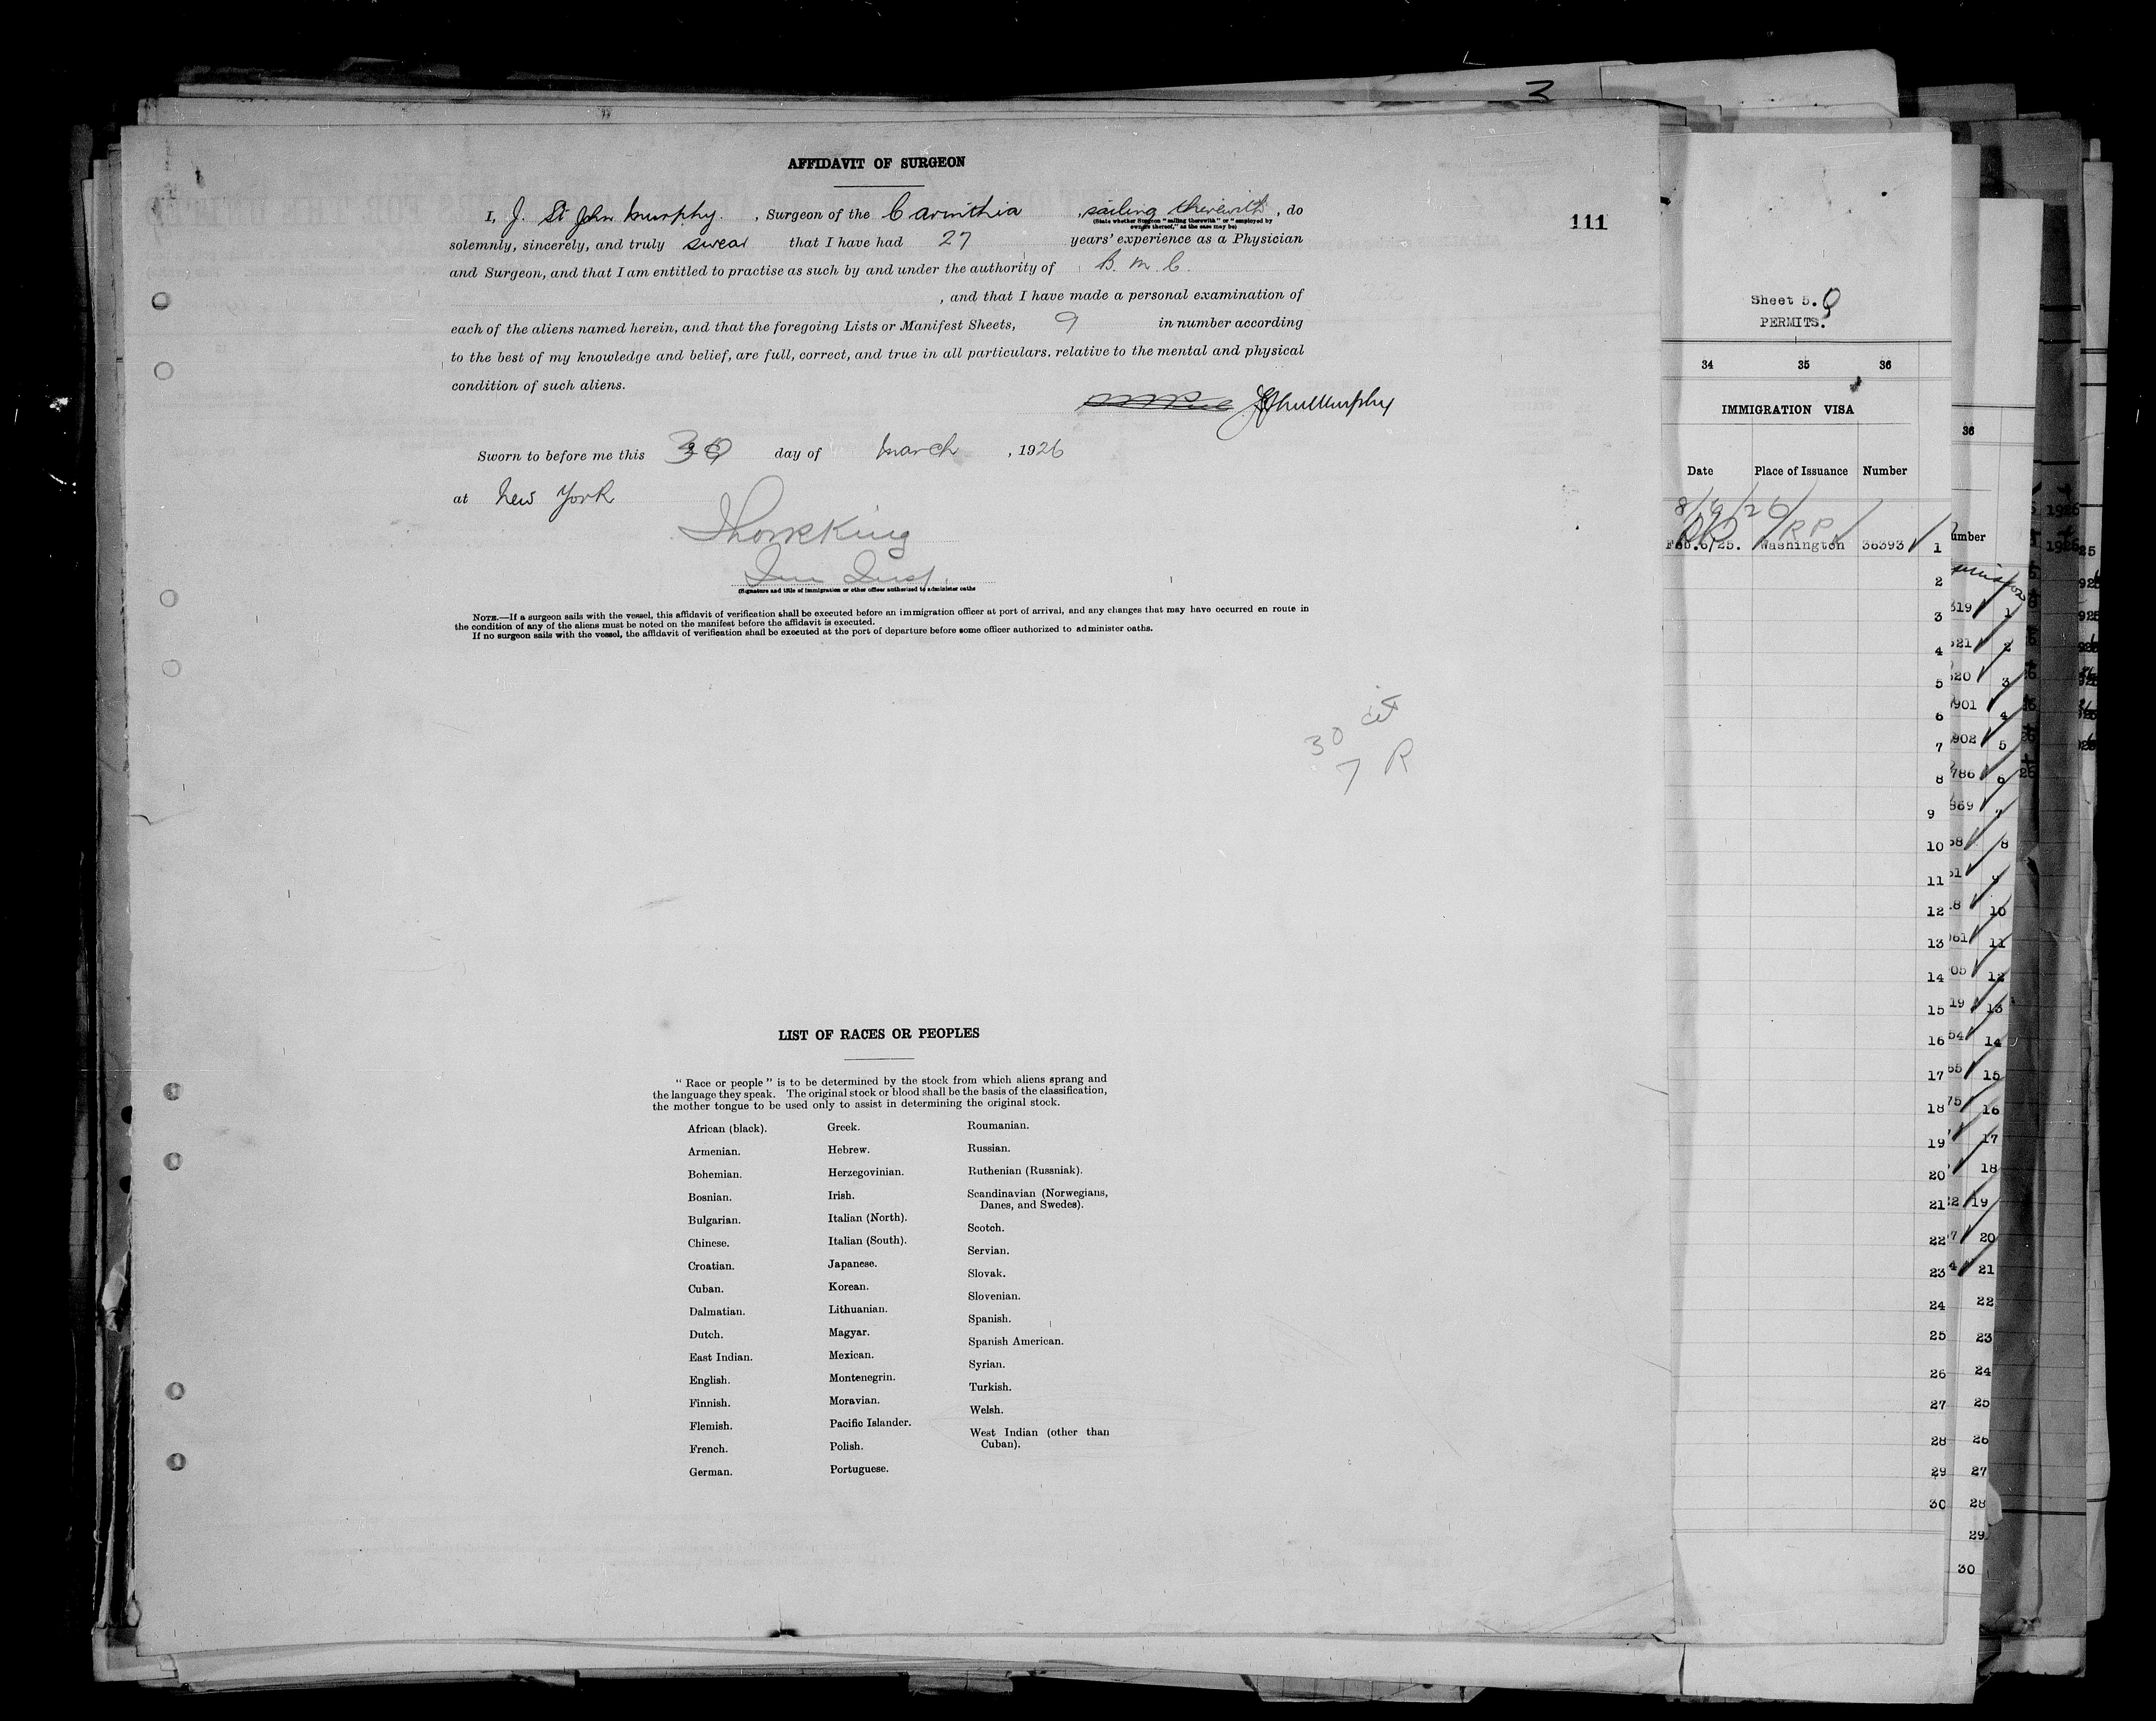 3
AFFIDAVIT OF SURGEON
I, J. St John Murphy. , Surgeon of the Carinthia , sailing therewith , do
(State whether Surgeon "sailing therewith" or "employed by
owners thereof," as the case may be)
111
solemnly, sincerely, and truly swear that I have had 27 years' experience as a Physician
and Surgeon, and that I am entitled to practise as such by and under the authority of B. M. C.
, and that I have made a personal examination of
each of the aliens named herein, and that the foregoing Lists or Manifest Sheets, 9 in number according
to the best of my knowledge and belief, are full, correct, and true in all particulars, relative to the mental and physical
condition of such aliens.
Sworn to before me this 30 day of March , 1926
at New York
Imm Insp.
(Signature and title of immigration or other officer authorized to administer oaths
NOTE.—If a surgeon sails with the vessel, this affidavit of verification shall be executed before an immigration officer at port of arrival, and any changes that may have occurred en route in
the condition of any of the aliens must be noted on the manifest before the affidavit is executed.
If no surgeon sails with the vessel, the affidavit of verification shall be executed at the port of departure before some officer authorized to administer oaths.
30 cit
7 R
LIST OF RACES OR PEOPLES
"Race or people" is to be determined by the stock from which aliens sprang and
the language they speak. The original stock or blood shall be the basis of the classification,
the mother tongue to be used only to assist in determining the original stock.
African (black).
Armenian.
Bohemian.
Bosnian.
Bulgarian.
Chinese.
Croatian.
Cuban.
Dalmatian.
Dutch.
East Indian.
English.
Finnish.
Flemish.
French.
German.
Greek.
Hebrew.
Herzegovinian.
Irish.
Italian (North).
Italian (South).
Japanese.
Korean.
Lithuanian.
Magyar.
Mexican.
Montenegrin.
Moravian.
Pacific Islander.
Polish.
Portuguese.
Roumanian.
Russian.
Ruthenian (Russniak).
Scandinavian (Norwegians,
Danes, and Swedes).
Scotch.
Servian.
Slovak.
Slovenian.
Spanish.
Spanish American.
Syrian.
Turkish.
Welsh.
West Indian (other than
Cuban).
Sheet 5. 9
PERMITS.
34 35 36
IMMIGRATION VISA
Date Place of Issuance Number
8/6/26
Feb.6/25. Washington 36393 1
2
3
4
5
6
7
8
9
10
11
12
13
14
15
16
17
18
19
20
21
22
23
24
25
26
27
28
29
30
36
umber
319 1
521 2
520 3
901 4
902 5
786 6
869 7
8
9
10
11
12
13
14
15
16
17
18
19
20
21
22
23
24
25
26
27
28
29
30
1926
1926